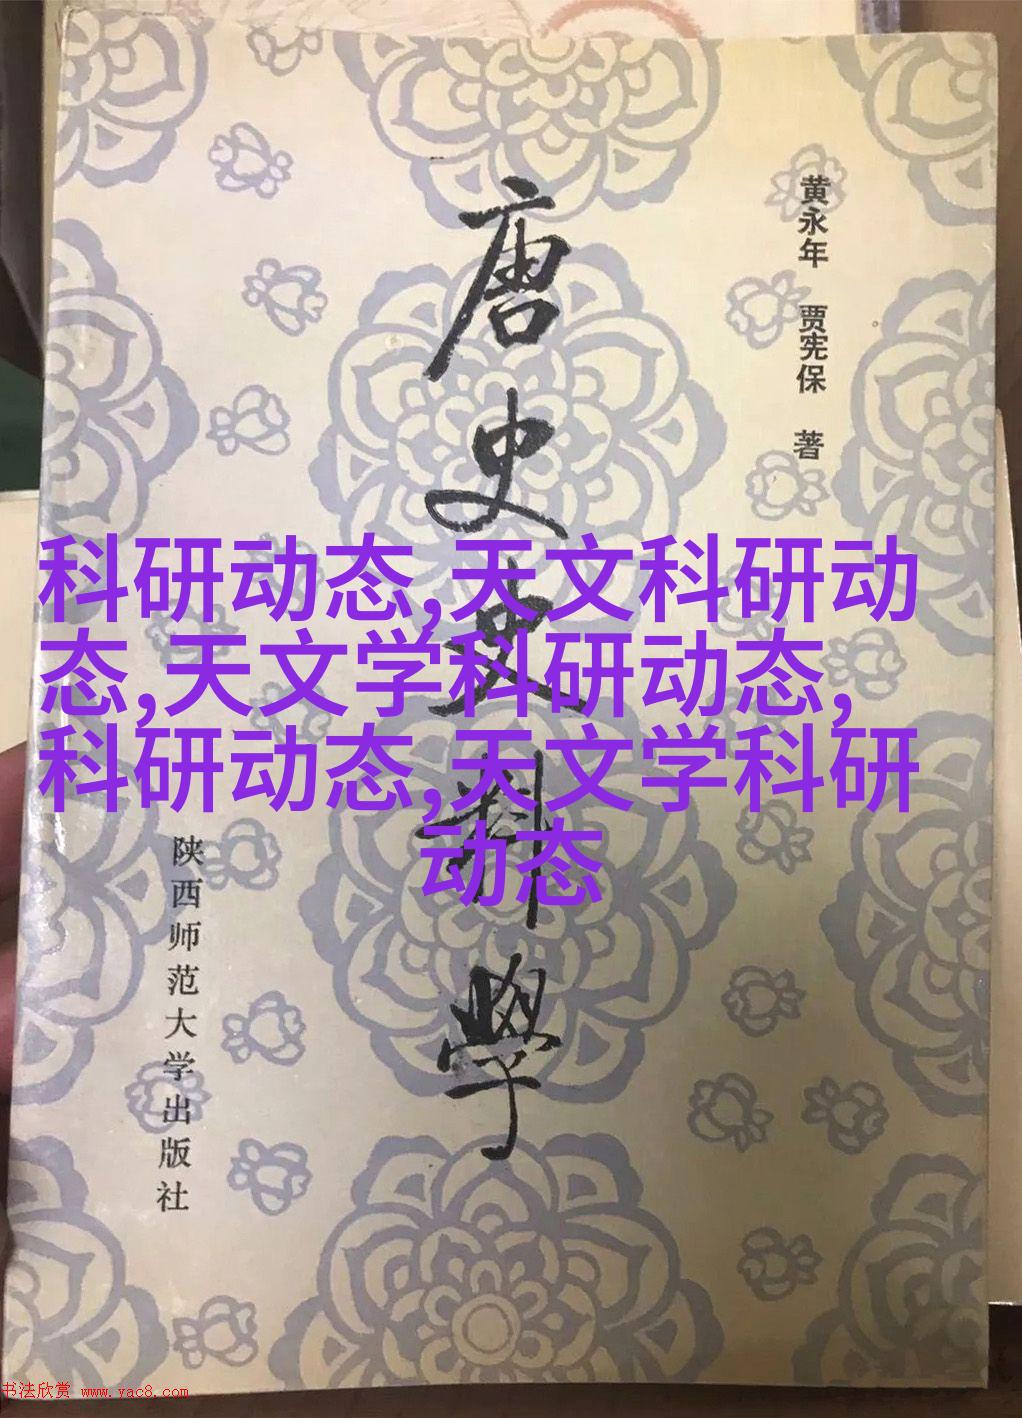 唐史史料學
黄永年 贾宪保 著
科研动态,天文科研动
态,天文学科研动态,
科研动态,天文学科研
动态
陕西师范大学出版社
书法欣赏 www.yac8.com